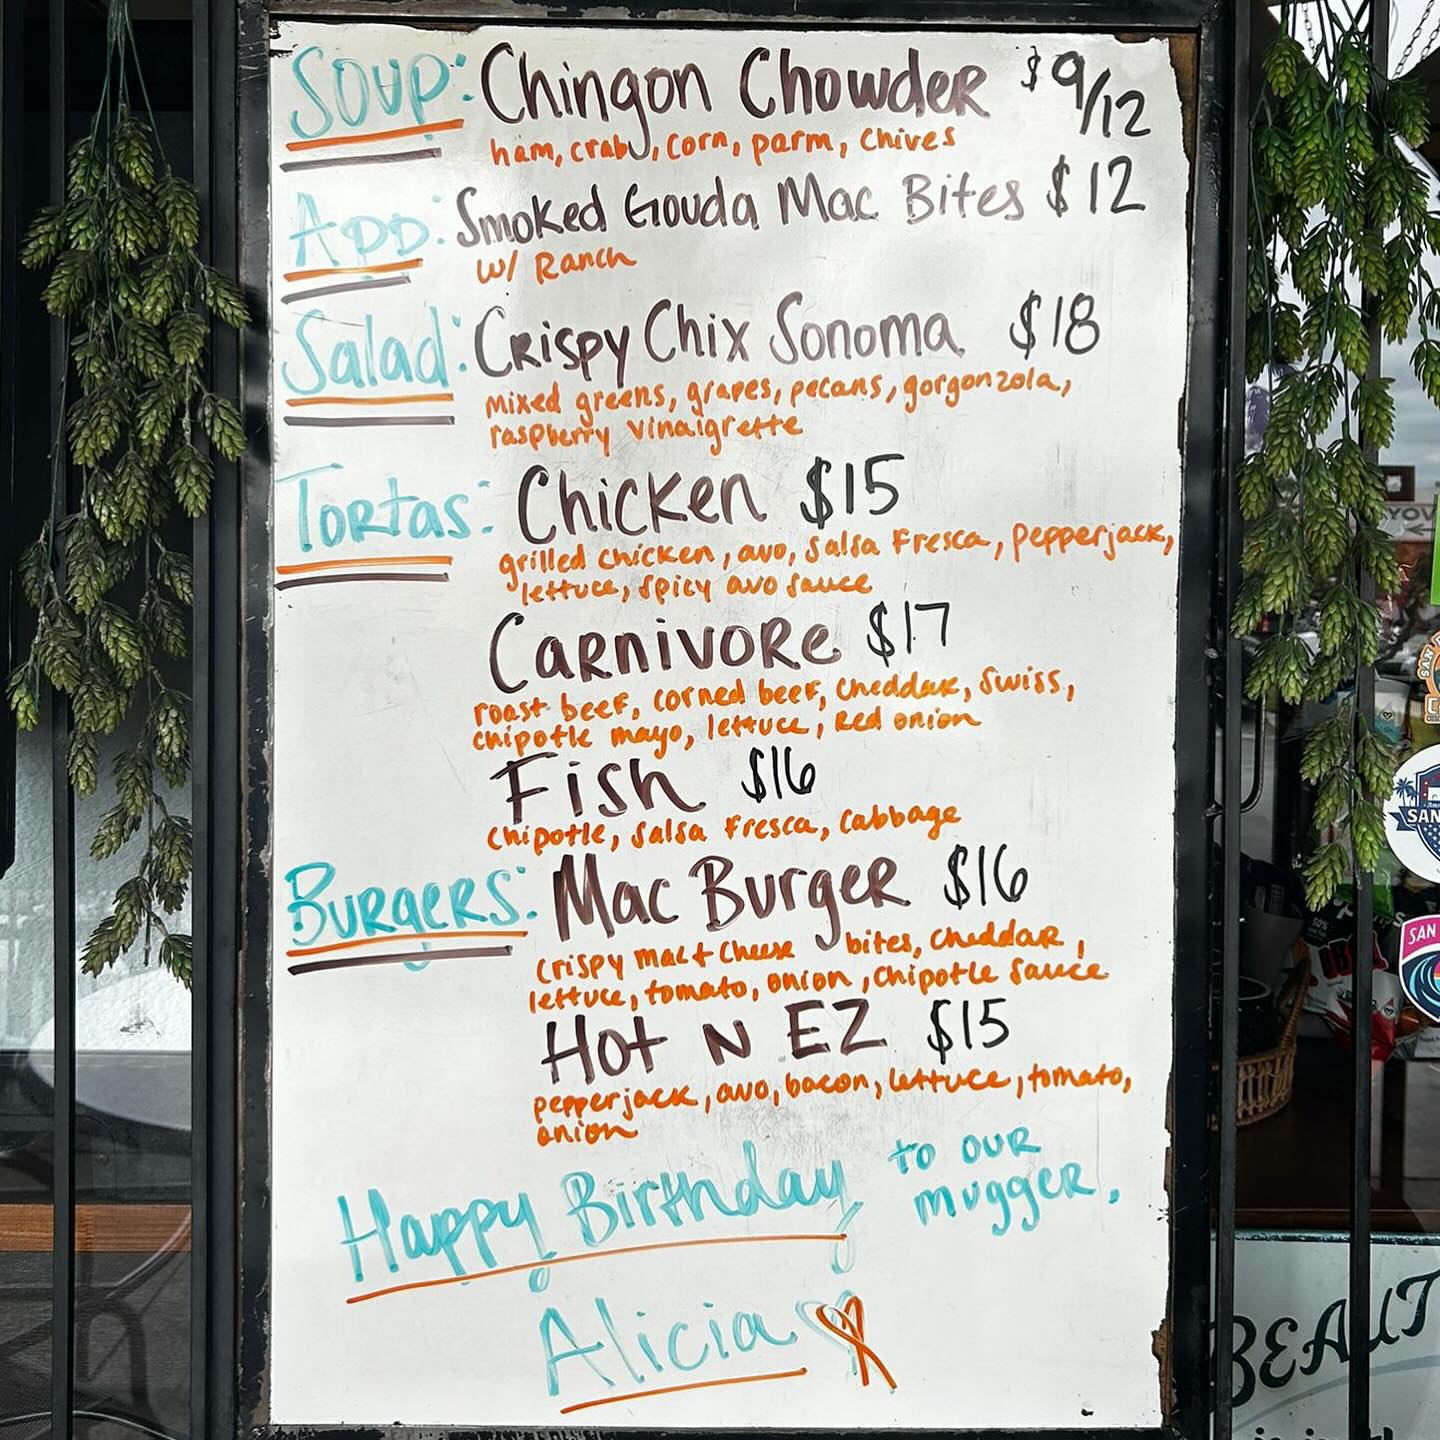 Soup: Chingon Chowder $9/12
ham, crab, corn, parm, chives
App: Smoked Gouda Mac Bites $12
w/ Ranch
Salad: Crispy Chix Sonoma $18
mixed greens, grapes, pecans, gorgonzola,
raspberry vinaigrette
Tortas: Chicken $15
grilled chicken, avo, salsa fresca, pepperjack,
lettuce, spicy avo sauce
Carnivore $17
roast beef, corned beef, cheddar, swiss,
chipotle mayo, lettuce, red onion
Fish $16
chipotle, salsa fresca, cabbage
Burgers: Mac Burger $16
crispy mac + cheese bites, cheddar,
lettuce, tomato, onion, chipotle sauce
Hot N EZ $15
pepperjack, avo, bacon, lettuce, tomato,
onion
Happy Birthday to our
mugger,
Alicia
SAN
SAN
BEAUT